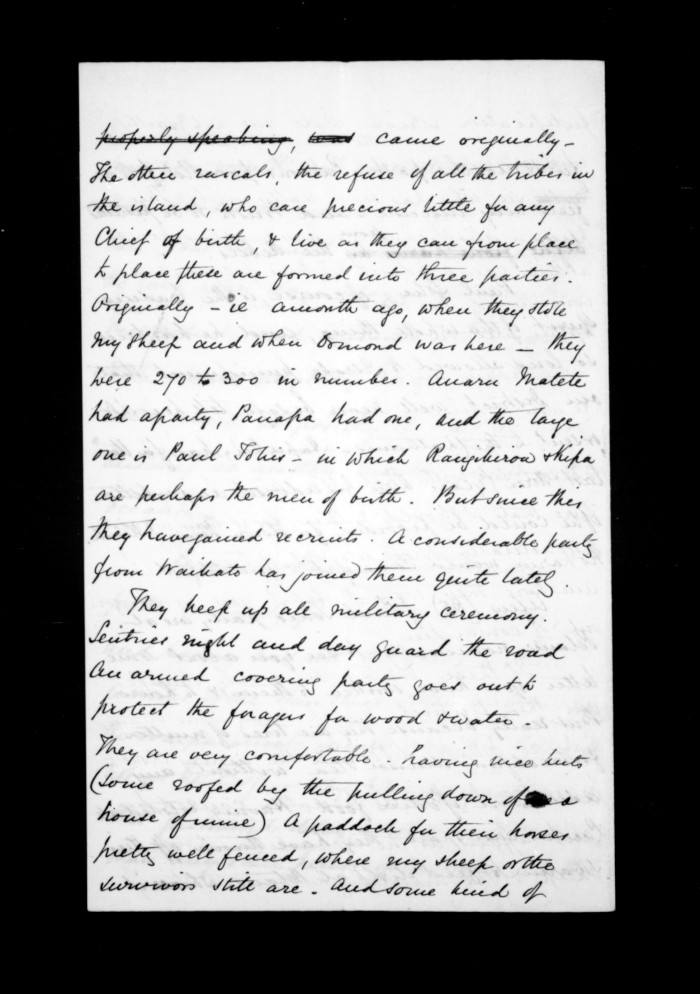 properly speaking, was came originally -
The other rascals, the refuse of all the tribes in
the island, who care precious little for any
Chief of birth, & live as they can from place
to place these are formed into three parties.
Originally - ie a month ago, when they stole
my sheep and when Ormond was here - they
were 270 to 300 in number. Anaru Matete
had a party, Panapa had one, and the large
one is Paul Tohi's - in which Rangihiroa & Kipa
are perhaps the men of birth. But since this
they have gained recruits. A considerable party
from Waikato has joined them quite lately.
They keep up all military ceremony.
Sentries night and day guard the road
An armed covering party goes out to
protect the foragers for wood & water.
They are very comfortable. having nice huts
(some roofed by the pulling down of a
house of mine) A paddock for their horses
pretty well fenced, where my sheep or the
survivors still are. And some kind of